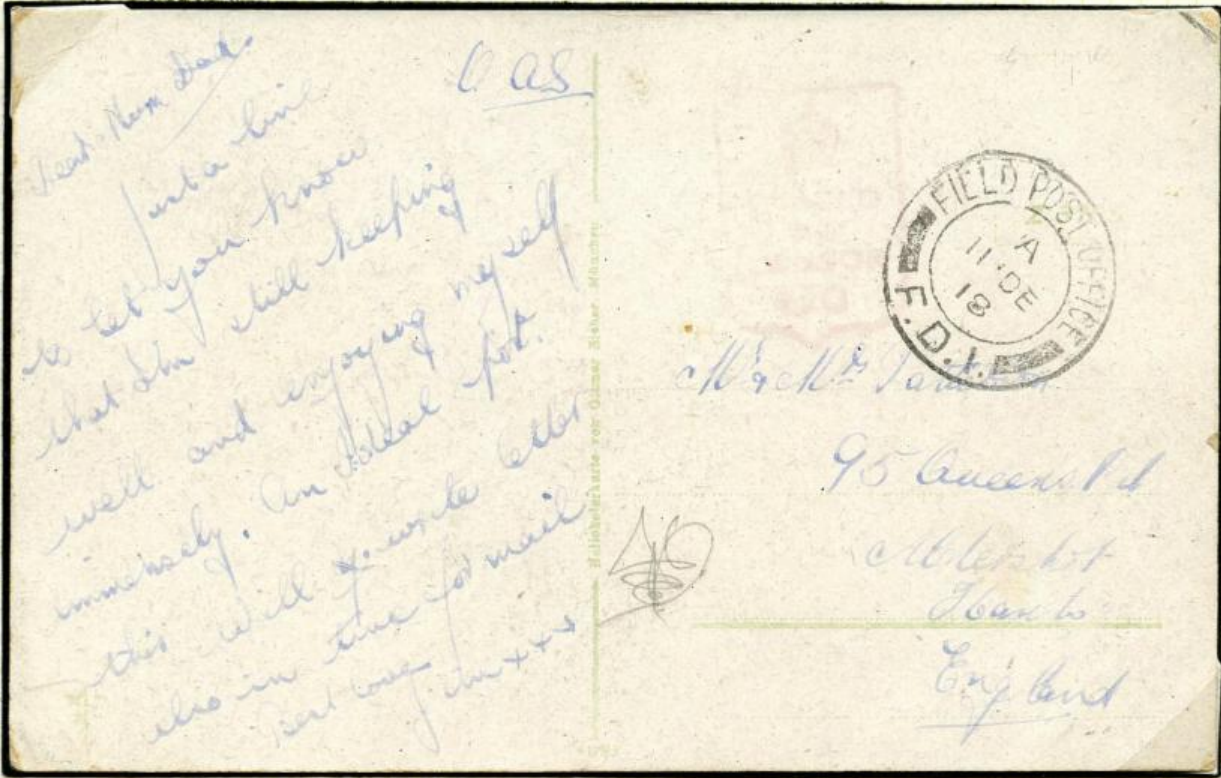 O.A.S
Dear Mum Dad.
just a line
to let you know
that I'm still keeping
well and enjoying myself
immensely. An ideal spot.
this will write letter
also in time for mail
Best love
Jim xxx
Heliokolorkarte von Ottmar Zieher, München
FIELD POST OFFICE
A
11 DE
18
F.D.1.
Mr & Mrs
95 Queens Rd
Aldershot
Hants
England